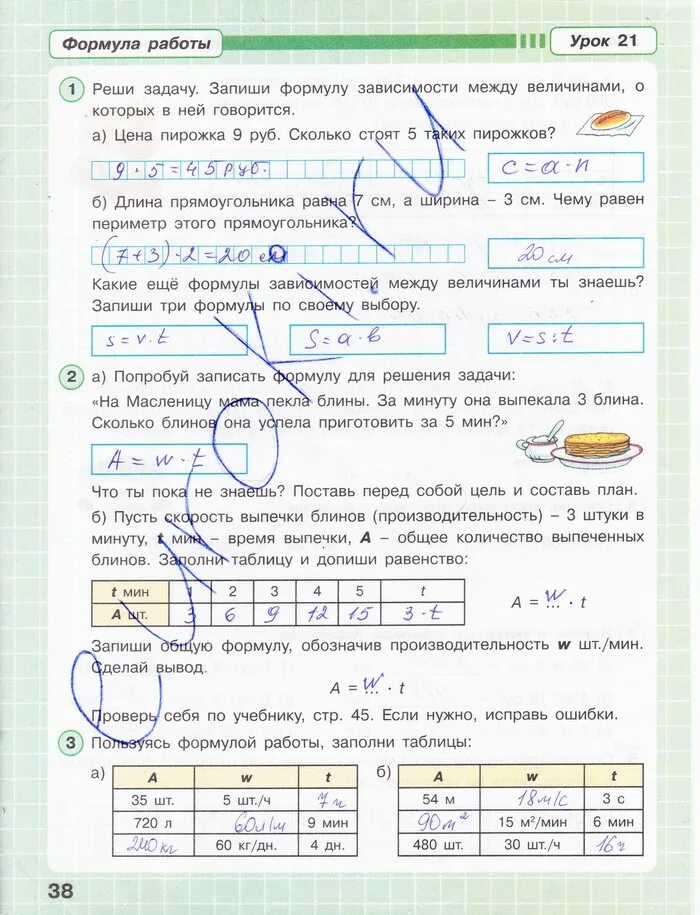 Формула работы
Урок 21
1 Реши задачу. Запиши формулу зависимости между величинами, о
которых в ней говорится.
а) Цена пирожка 9 руб. Сколько стоят 5 таких пирожков?
9 · 5 = 45 руб.
c = a · n
б) Длина прямоугольника равна 7 см, а ширина – 3 см. Чему равен
периметр этого прямоугольника?
(7+3) · 2 = 20 см
20 см
Какие ещё формулы зависимостей между величинами ты знаешь?
Запиши три формулы по своему выбору.
s = v · t
S = a · b
v = s : t
2 а) Попробуй записать формулу для решения задачи:
«На Масленицу мама пекла блины. За минуту она выпекала 3 блина.
Сколько блинов она успела приготовить за 5 мин?»
A = w · t
Что ты пока не знаешь? Поставь перед собой цель и составь план.
б) Пусть скорость выпечки блинов (производительность) – 3 штуки в
минуту, t мин – время выпечки, A – общее количество выпеченных
блинов. Заполни таблицу и допиши равенство:
t мин 1 2 3 4 5 t
A шт. 3 6 9 12 15 3 · t
A = w ... · t
Запиши общую формулу, обозначив производительность w шт./мин.
Сделай вывод.
A = w ... · t
Проверь себя по учебнику, стр. 45. Если нужно, исправь ошибки.
3 Пользуясь формулой работы, заполни таблицы:
а)
A w t
35 шт. 5 шт./ч 7 ч
720 л 60 л/м 9 мин
240 кг 60 кг/дн. 4 дн.
б)
A w t
54 м 18 м/с 3 с
90 м² 15 м²/мин 6 мин
480 шт. 30 шт./ч 16 ч
38
euroki.ru